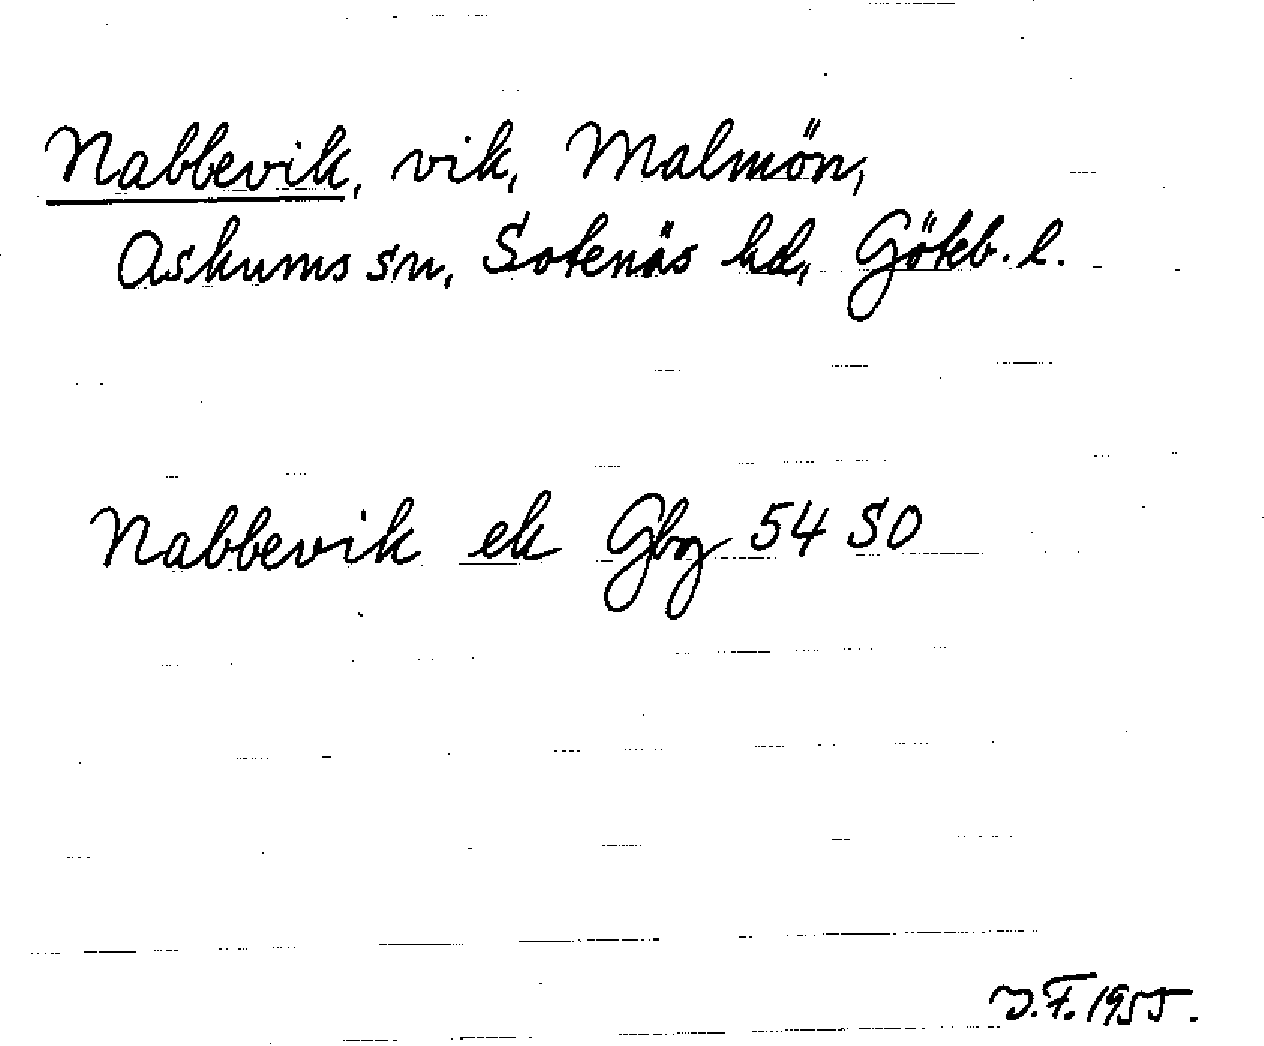 Nabbevik, vik, Malmön,
Askums sn, Sotenäs hd, Göteb. l.
Nabbevik ek Gbg 54 SO
J.F. 1955.